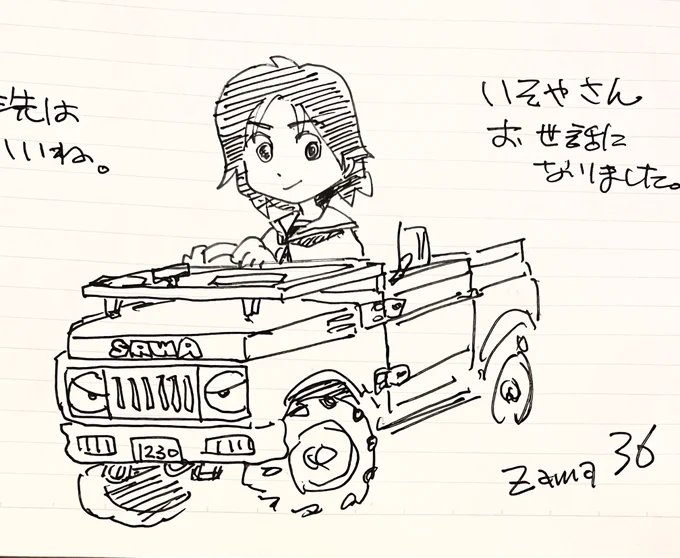 先は
いいね。
いそやさん
お世話に
なりました。
SAWA
1230
zama 36